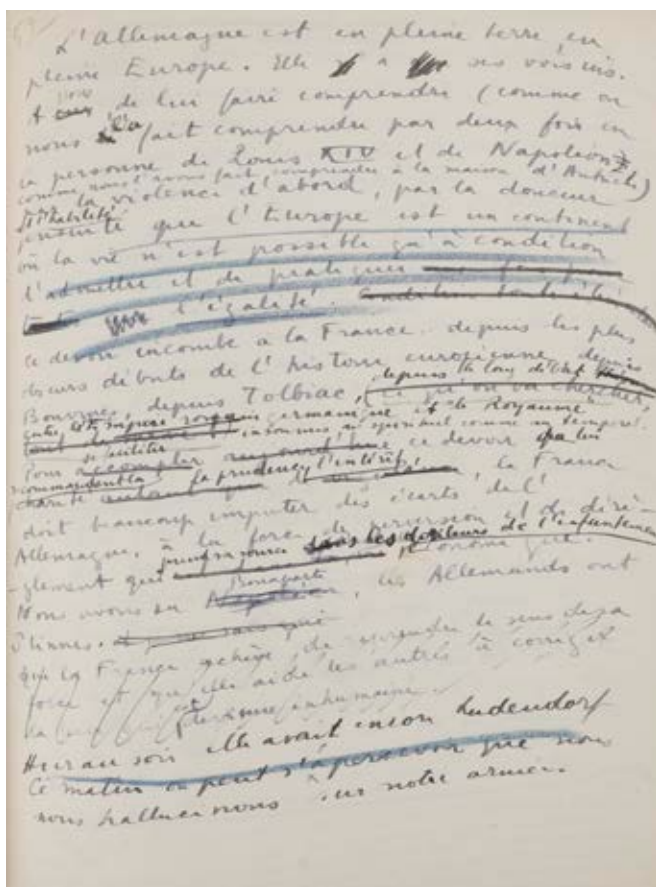 L'Allemagne est en pleine terre, en
pleine Europe. Elle a ses voisins.
A nous de lui faire comprendre (comme on
nous l'a fait comprendre par deux fois en
la personne de Louis XIV et de Napoléon Ier
comme nous l'avons fait comprendre à la maison d'Autriche)
par la violence d'abord, par la douceur
et l'habileté
ensuite que l'Europe est un continent
où la vie n'est possible qu'à condition
d'admettre et de pratiquer
l'égalité. Condition
ce devoir incombe à la France depuis les plus
obscurs débuts de l'histoire européenne, depuis
Bouvines, depuis Tolbiac, depuis le long débat
ce qu'on va chercher,
entre le germanique et le Royaume
insoumis au spirituel comme au temporel.
se faciliter
Pour accomplir aujourd'hui ce devoir que lui
recommandent la
charité la prudence, l'intérêt, la France
doit beaucoup imputer des écarts de l'
Allemagne, à la force de perversion et de dérè-
-glement que
sous les douleurs de l'enfantement
économique.
Bonaparte
Nous avons eu , les Allemands ont
Stinnes.
que la France achève de reprendre le sens de sa
force et qu'elle aide les autres à corriger
inhumaine
Hier au soir elle avait encor Ludendorf
Ce matin on peut s'apercevoir que nous
nous hallucinons sur notre armée.